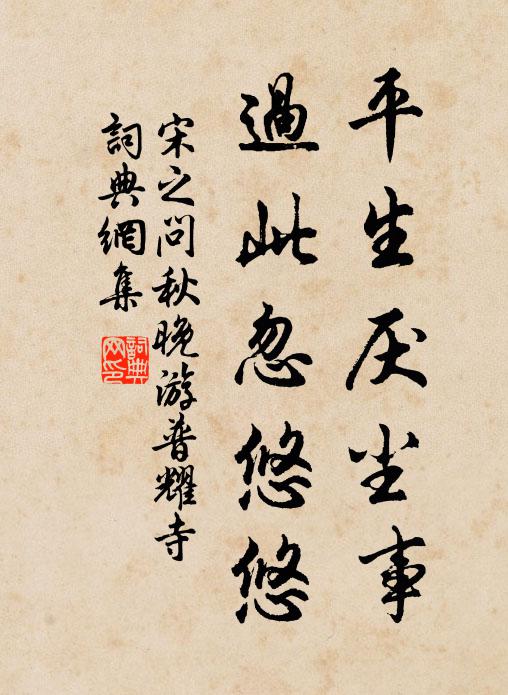 平生厌尘事
過此忽悠悠
宋之问秋晚游普耀寺
詞典網集
詞典
网印